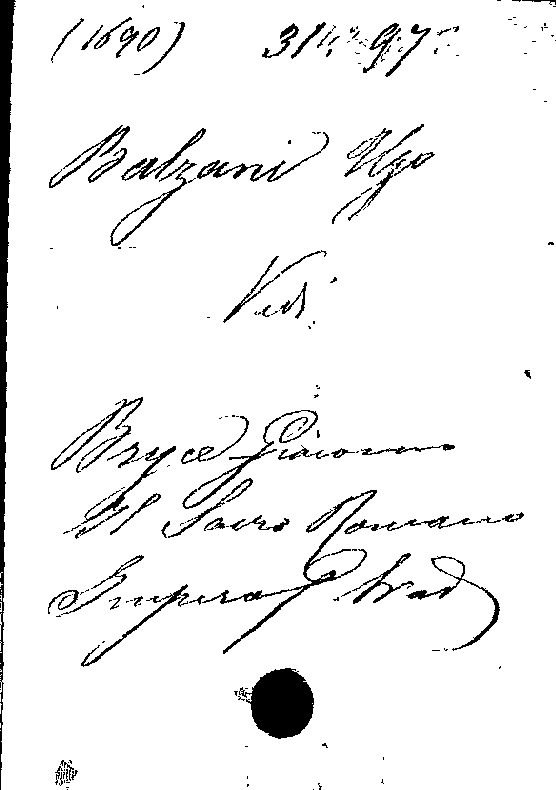 (1690) 31
Balzani Ugo
Vedi
Bryce Giacomo
Il Sacro Romano
Impero (Trad)